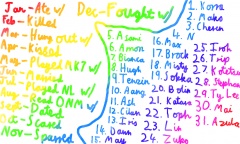 Jan-Ate w/
Feb-Killed
Mar-Hung out w/
Apr-Kissed
May-Played MK7 w/
Jun-Married
Jul-Played NL w/
Aug-Read ONM w/
Sept-Dated
Oct-Scared
Nov-Spared
Dec-Fought w/
1. Korra
2. Mako
3. Chesen
4. N
5. Asami
6. Amon
7. Bianca
8. Hugh
9. Tenzin
10. Aang
11. Ash
12. Cilan
13. Iris
14. Dawn
15. May
16. Max
17. Brock
18. Misty
19. Sokka
20. Bolin
21. Katara
22. Toph
23. Lin
24. Zuko
25. Iroh
26. Trip
27. Kotetsu
28. Stephan
29. Ty Lee
30. Mai
31. Azula